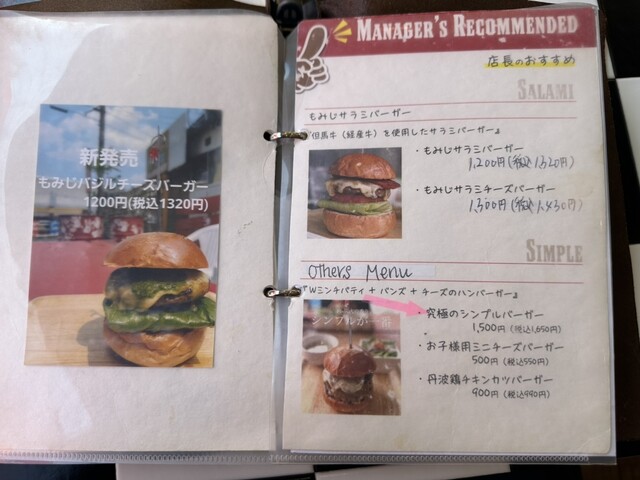 新発売
もみじバジルチーズバーガー
1200円(税込1320円)
MANAGER'S RECOMMENDED
店長のおすすめ
SALAMI
もみじサラミバーガー
『但馬牛（経産牛）を使用したサラミバーガー』
・もみじサラミバーガー
1,200円(税込1,320円)
・もみじサラミチーズバーガー
1,300円(税込1,430円)
SIMPLE
Others Menu
『Wミンチパティ + バンズ + チーズのハンバーガー』
シンプルが一番
・究極のシンプルバーガー
1,500円 (税込1,650円)
・お子様用ミニチーズバーガー
500円 (税込550円)
・丹波鶏チキンカツバーガー
900円 (税込990円)